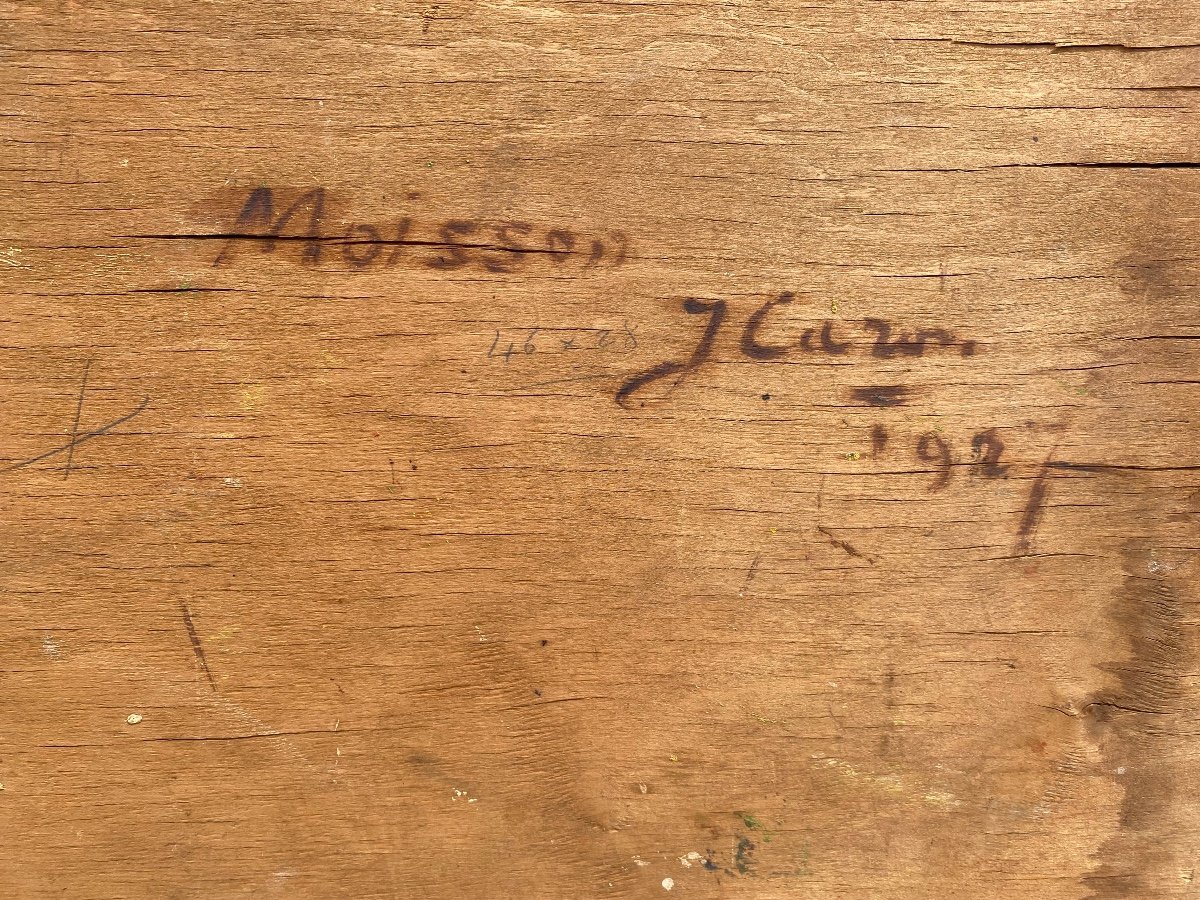 Moisson
46 x
J Caron
1927